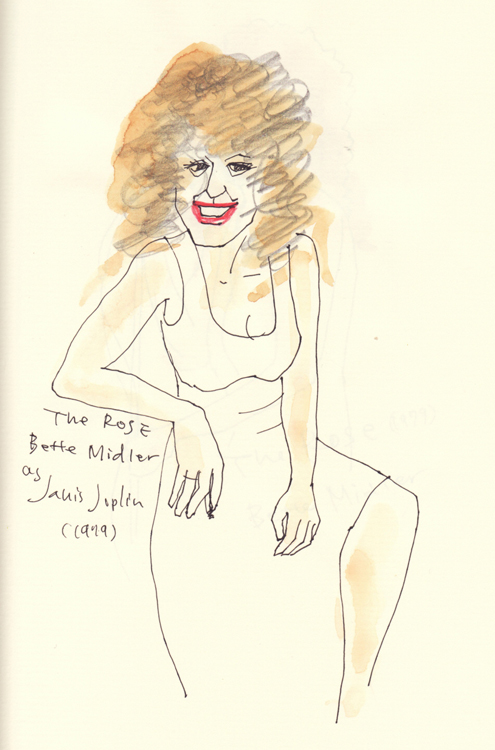 The ROSE
Bette Midler
as
Janis Joplin
(1979)